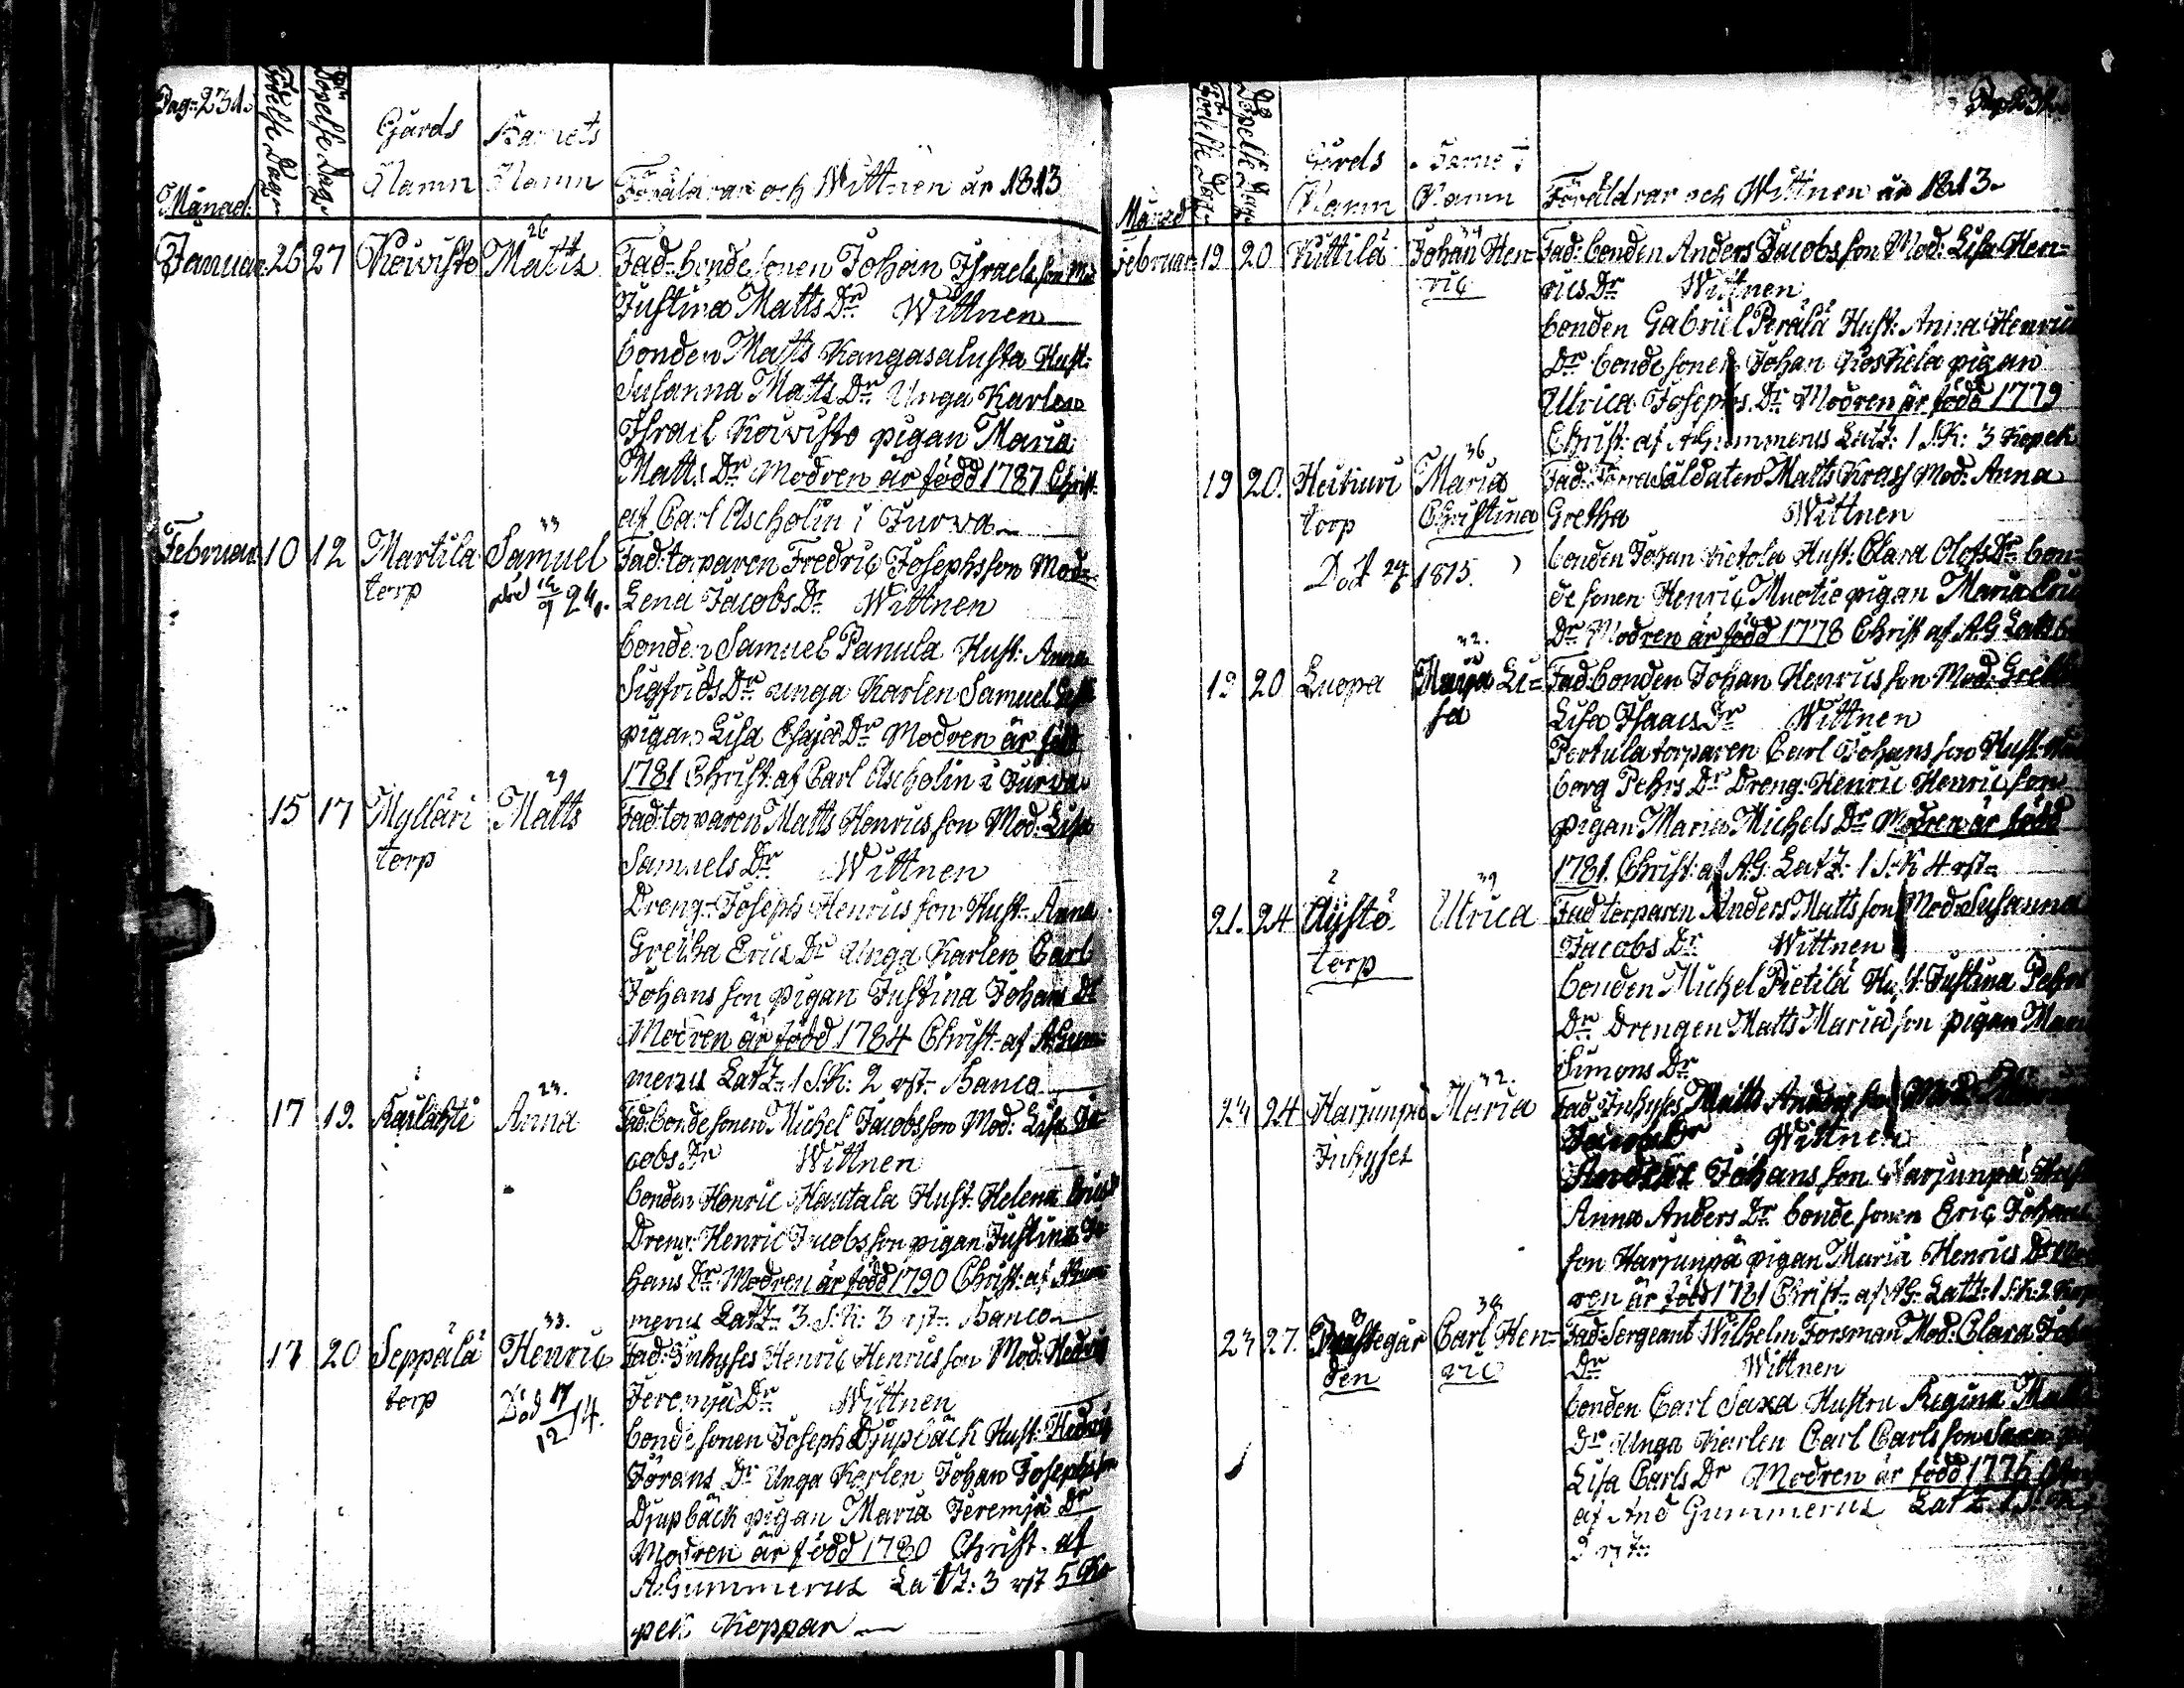 Pag: 231.
Månad.
Födelse Dag
Döpelse Dag
Gårds Namn
Barnets Namn
Föräldrar och Wittnen år 1813
Januar. 26 27 Koivisto Matts 26 Fad: bondesonen Johan Israels son Mod
Justina Matts Dr Wittnen
bonden Matts Kangasalusta Hust:
Susanna Matts Dr Unga Karlen
Israel Koivisto pigan Maria
Matts Dr Modren är född 1787 Christ.
af Carl Ascholin i Jurva
Februar. 10 12 Martila torp Samuel 33 Fad: torparen Fredric Josephsson Mod:
Lena Jacobs Dr Wittnen
bonden Samuel Panula Hust: Anna
Sigfrids Dr unga Karlen Samuel
pigan Lisa Esaiæ Dr Modren är född
1781 Christ. af Carl Ascholin i Jurva
15 17 Mylläri torp Matts 29 Fad: torparen Matts Henricsson Mod: Lisa
Samuels Dr Wittnen
Dreng: Joseph Henrics son Hust: Anna
Gretha Erics Dr Unga Karlen Carl
Johans son pigan Justina Johans Dr
Modren är född 1784 Christ. af A. Gum=
merus Latz 1 S.K: 2 rst. Banco
17 19. Karlahti Anna 23. Fad: bondesonen Michel Jacobsson Mod: Lisa Ja
cobs Dr Wittnen
bonden Henric Hautala Hust: Helena Erics
Dreng: Henric Jacobs son pigan Justina Jo
hans Dr Modren är född 1790 Christ: af A Gum
merus Latz 3 S.K: 3 rst. Banco
17 20 Seppälä torp Henric 33. Död 17/12 14. Fad: Inhyses Henric Henricsson Mod: Hedvig
Jeremiæ Dr Wittnen
bondesonen Joseph Djupbäck Hust: Hedvig
Jörans Dr Unga Karlen Johan Josephsson
Djupbäck pigan Maria Jeremiæ Dr
Modren är född 1780 Christ. af
A. Gummerus Latz: 3 rst 5 Ko
pek Koppar
Månad
Födelse Dag
Döpelse Dag
Gårds Namn
Barnets Namn
Föräldrar och Wittnen år 1813.
Februar. 19 20 Kittilä Johan Hen=
ric 34 Fad: bonden Anders Jacobsson Mod: Lisa Hen=
rics Dr Wittnen
bonden Gabriel Perälä Hust: Anna Henrics
Dr bondesonen Johan Koskela pigan
Ulrica Josephs Dr Modren är född 1779
Christ: af A Gummerus Latz: 1 S.K: 3 Kopek
19 20. torp Maria Christina 36 Fad: Förra Soldaten Matts Krass Mod: Anna
Gretha Wittnen
Död 1815.
bonden Johan Hust: Clara Olofs Dr bon=
desonen Henric pigan Maria Erics
Dr Modren är född 1778 Christ af A.G. Latz
19 20 Luopa Maria Li=
sa 32. Fad: bonden Johan Henricsson Mod: Gretha
Lisa Isaacs Dr Wittnen
Pertula torparen Carl Johansson Hust:
borg Pehrs Dr Dreng: Henric Henricsson
pigan Maria Michels Dr Modren är född
1781. Christ: af A.G. Latz: 1 S.K 4 rst.
21. 24 torp Ulrica 39 Fad torparen Anders Mattsson Mod: Susanna
Jacobs Dr Wittnen
bonden Michel Pietilä Hust: Justina Pehrs
Dr Drengen Matts Mariæ son pigan Maria
Simons Dr
23 24 Harjunpä Inhyses Maria 32. Fad Inhyses Matts Anders son Mod:
Dr Wittnen
Anders Johans son Harjunpä Hust
Anna Anders Dr bondesonen Eric Johans
son Harjunpä pigan Maria Henrics Dr Mod
ren är född 1781 Christ. af A.G. Latz: 1 S.K: 2 Kop
23 27. Prästegår
den Carl Hen=
ric 38 Fad: Sergeant Wilhelm Forsman Mod: Clara Joh
Dr Wittnen
bonden Carl Saxa Hustru Regina
Dr Unga Karlen Carl Carlsson Saxa
Lisa Carls Dr Modren är född 1775
af And Gummerus Latz